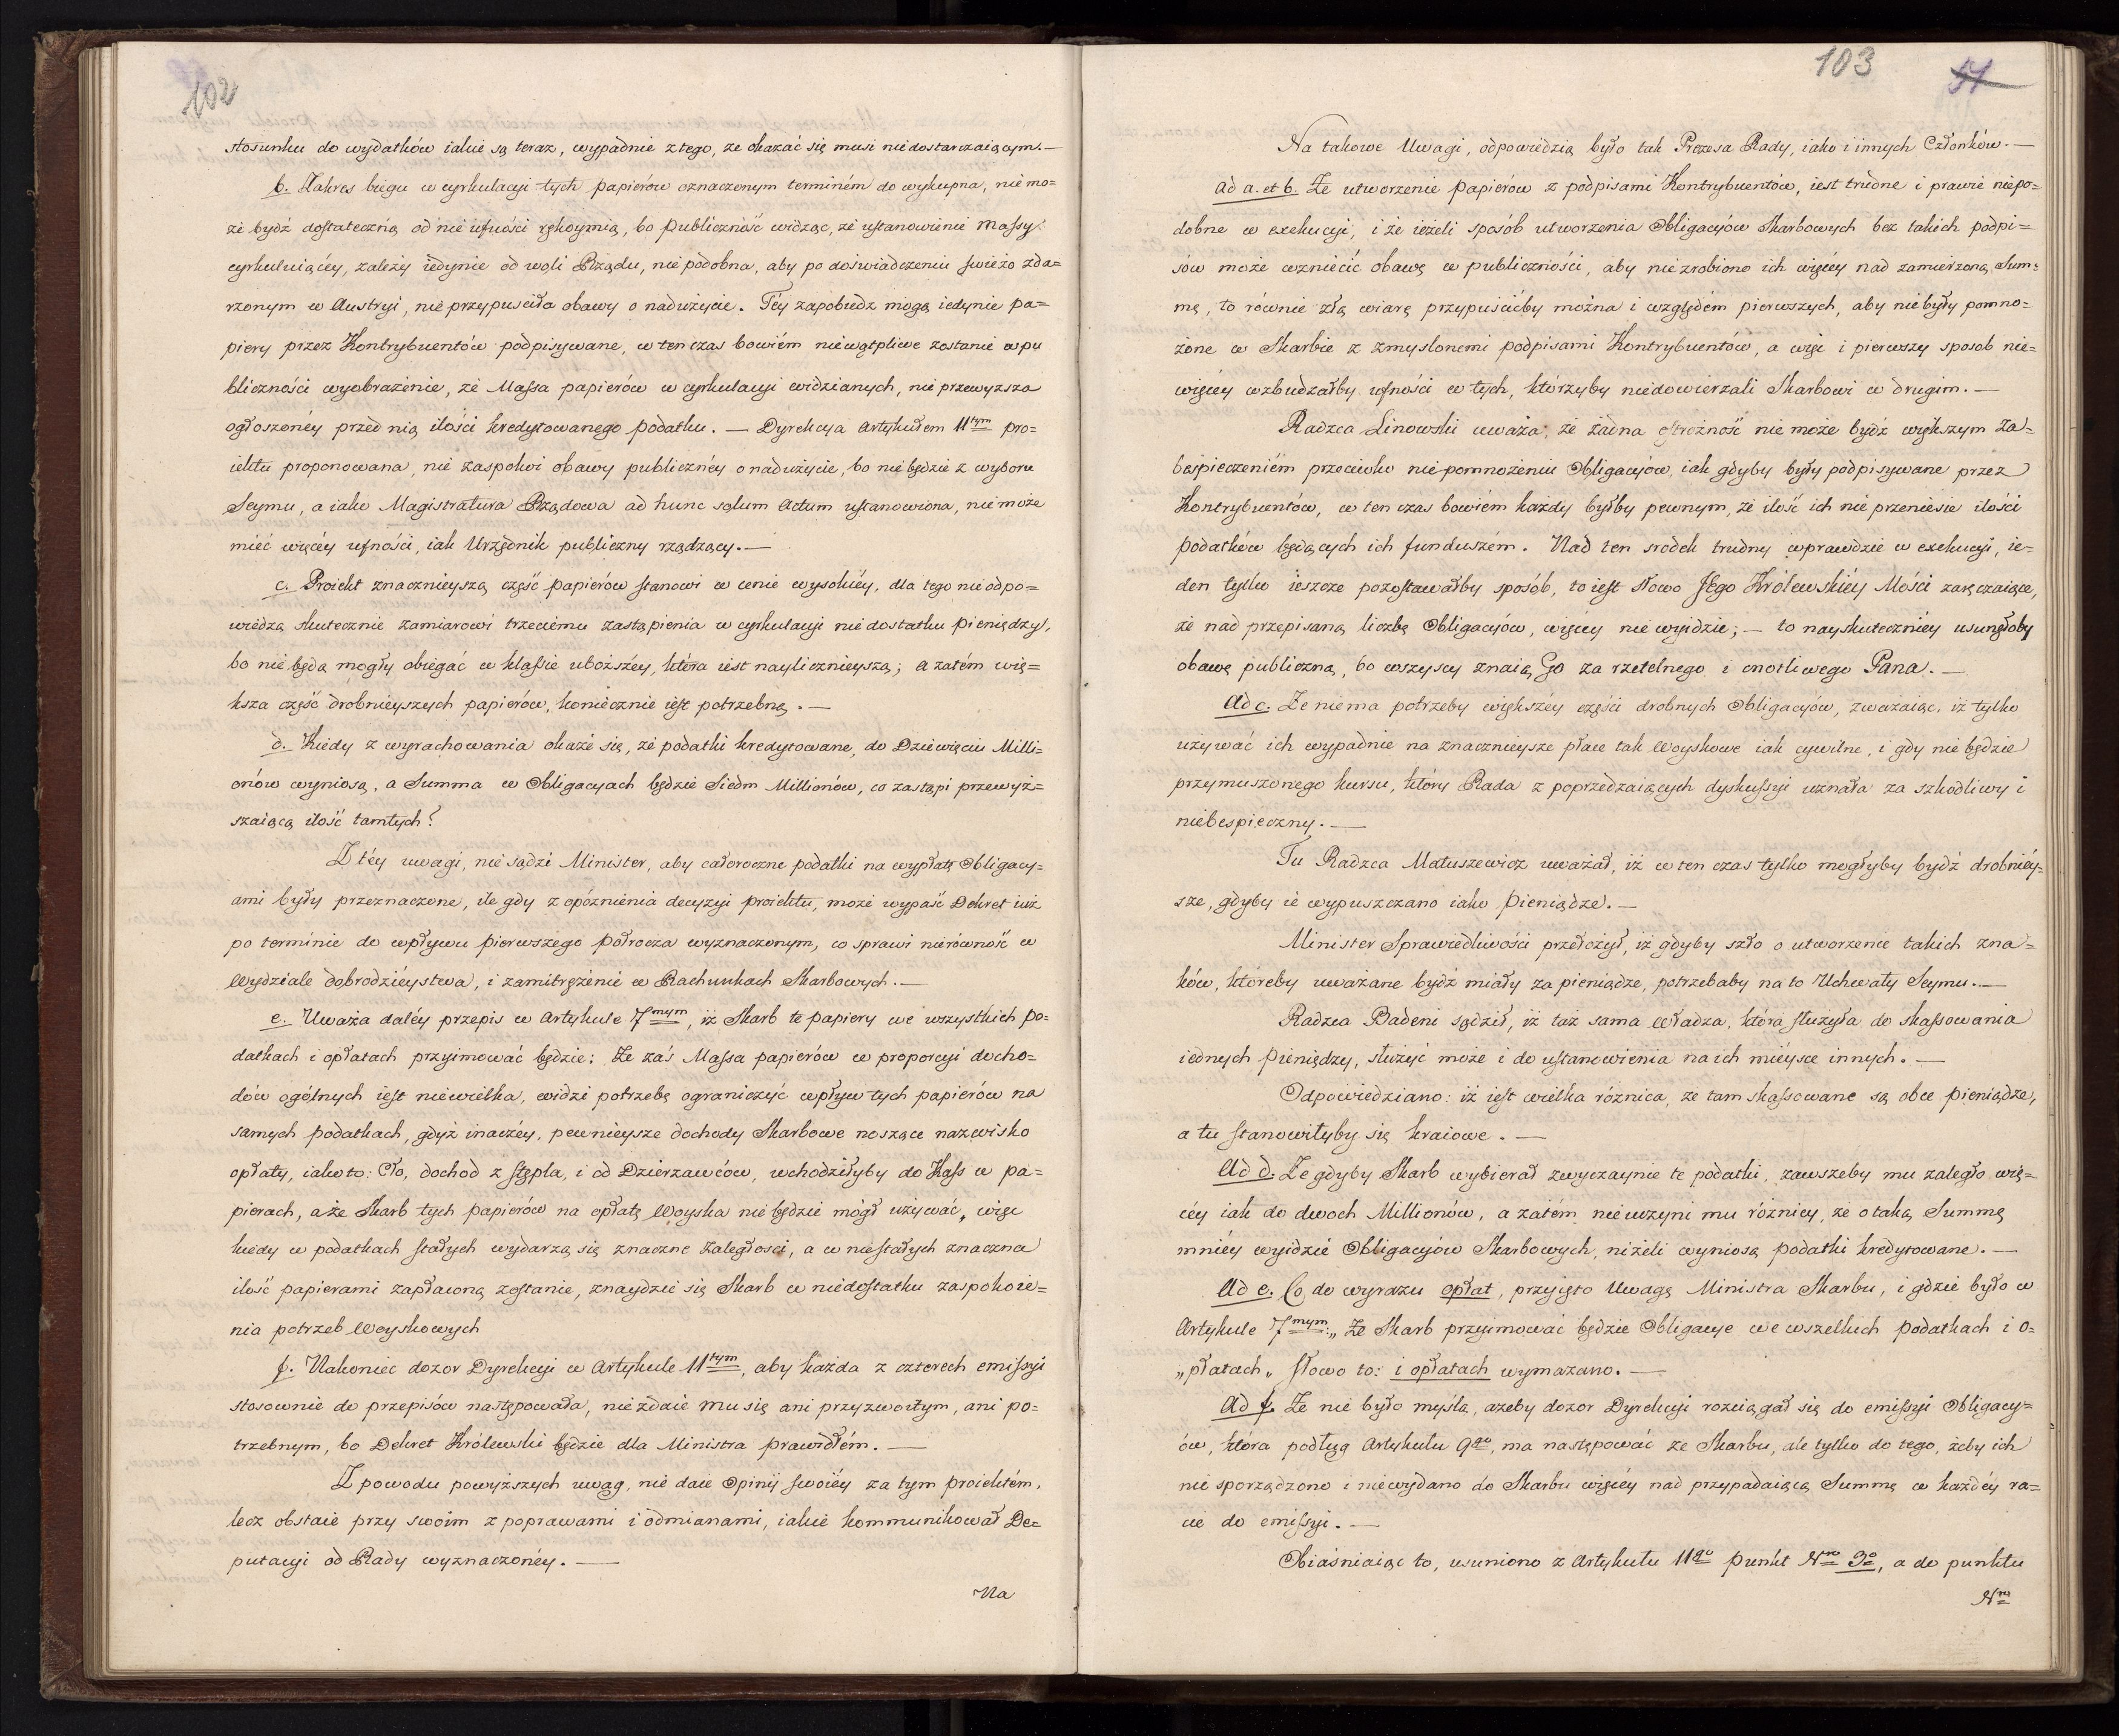 102
stosunku do wydatków iakie są teraz, wypadnie z tego, że okazać się musi niedostarczaiącym. —
b. Zakres biegu w cyrkulacyi tych papierów oznaczonym terminém do wykupna, nie mo=
że bydź dostateczną od nieufności rękoymią, bo publiczność widząc, że ustanowienie Massy
cyrkuluiącéy, zależy iedynie od woli Rządu, niepodobna, aby po doświadczeniu świeżo zda=
rzonym w Austryi, nie przypuściła obawy o nadużycie. Téy zapobiedz mogą iedynie pa=
piery przez Kontrybuentów podpisywane, w ten czas bowiém niewątpliwe zostanie w pu
bliczności wyobrażenie, że Massa papierów w cyrkulacyi widzianych, nie przewyższa
ogłoszonéy przed nią ilości kredytowanego podatku. — Dyrekcya Artykułem 11tym pro=
iektu proponowana, nie zaspokoi obawy publicznéy o nadużycie, bo nie będzie z wyboru
Seymu, a iako Magistratura Rządowa ad hunc solum Actum ustanowiona, nie może
mieć więcéy ufności, iak Urzędnik publiczny rządzący. —
c. Proiekt znacznieyszą część papierów stanowi w cenie wysokiéy, dla tego nie odpo=
wiedzą skutecznie zamiarowi trzeciemu zastąpienia w cyrkulacyi niedostatku pieniędzy,
bo nie będą mogły obiegać w klassie uboższéy, która iest naylicznieyszą; a zatém wię=
ksza część drobnieyszych papierów, koniecznie iest potrzebną. —
d. Kiedy z wyrachowania okaże się, że podatki kredytowane, do Dziewięciu Milli=
onów wyniosą, a Summa w Obligacyach będzie Siedm Millionów, co zastąpi przewyż=
szaiącą ilość tamtych?
Z téy uwagi, nie sądzi Minister, aby całoroczne podatki na wypłatę Obligacy=
ami były przeznaczone, ile gdy z opóźnienia decyzyi proiektu, może wypaść Dekret iuż
po terminie do wpływu pierwszego półrocza wyznaczonym, co sprawi nierówność w
Wydziale dobrodzieystwa, i zamitrężenie w Rachunkach Skarbowych. —
e. Uważa daléy przepis w Artykule 7mym, iż Skarb te papiery we wszystkich po=
datkach i opłatach przyimować będzie; Że zaś Massa papierów w proporcyi docho=
dów ogólnych iest niewielka, widzi potrzebę ograniczyć wpływ tych papierów na
samych podatkach, gdyż inaczéy, pewnieysze dochody Skarbowe noszące nazwisko
opłaty, iako to: Cło, dochod z stępla, i od Dzierzawców, wchodziłyby do Kass w pa=
pierach, a że Skarb tych papierów na opłatę Woyska nie będzie mógł używać, więc
kiedy w podatkach stałych wydarzą się znaczne zaległosci, a w niestałych znaczna
ilość papierami zapłaconą zostanie, znaydzie się Skarb w niedostatku zaspokoie=
nia potrzeb Woyskowych
f. Nakoniec dozor Dyrekcyi w Artykule 11tym, aby każda z czterech emissyi
stosownie do przepisów następowała, nie zdaie mu się ani przyzwoitym, ani po=
trzebnym, bo Dekret Królewski będzie dla Ministra prawidłém. —
Z powodu powyższych uwag, nie daie Opinii swoiéy za tym proiektém,
lecz obstaie przy swoim z poprawami i odmianami, iakie kommunikował De=
putacyi od Rady wyznaczonéy. —
Na
103
51
Na takowe Uwagi, odpowiedzią było tak Prezesa Rady, iako i innych Członków. —
Ad a. et b. Że utworzenie papierów z podpisami Kontrybuentów, iest trudne i prawie niepo=
dobne w exekucyi, i że ieżeli sposób utworzenia Obligacyów Skarbowych bez takich podpi=
sów może wzniecić obawę w publiczności, aby nie zrobiono ich więcéy nad zamierzoną Sum=
mę, to równie złą wiarę przypuścićby można i względém pierwszych, aby nie były pomno=
żone w Skarbie z zmyslonemi podpisami Kontrybuentów, a więc i pierwszy sposob nie=
więcéy wzbudzałby ufności w tych, którzyby niedowierzali Skarbowi w drugim. —
Radzca Linowski uważa; że żadna ostrożność nie może bydź większym za=
bespieczeniém przeciwko niepomnożeniu Obligacyów, iak gdyby były podpisywane przez
Kontrybuentów, w ten czas bowiém każdy byłby pewnym, że ilość ich nie przeniesie ilości
podatków będących ich funduszém. Nad ten srodek trudny wprawdzie w exekucyi, ie=
den tylko ieszcze pozostawałby sposób, to iest Słowo JEgo Królewskiéy Mości zaręczaiące,
że nad przepisaną liczbę Obligacyów, więcey nie wyidzie; — to nayskuteczniey usunęłoby
obawę publiczną, bo wszyscy znaią Go za rzetelnego i cnotliwego Pana. —
Ad c. Że niema potrzeby większéy części drobnych Obligacyów, zważaiąc, iż tylko
używać ich wypadnie na znacznieysze płace tak Woyskowe iak cywilne, i gdy nie będzie
przymuszonego kursu, który Rada z poprzedzaiących dyskussyi uznała za szkodliwy i
niebespieczny. —
Tu Radzca Matuszewicz uważał, iż w ten czas tylko mogłyby bydź drobniéy=
sze, gdyby ie wypuszczano iako pieniądze. —
Minister Sprawiedliwości przełożył, iż gdyby szło o utworzenie takich zna=
ków, któreby uważane bydź miały za pieniądze, potrzebaby na to Uchwały Seymu. —
Radzca Badeni sądził, iż taż sama władza, która służyła do skassowania
iednych pieniędzy, służyć może i do ustanowienia na ich mieysce innych. —
Odpowiedziano: iż iest wielka różnica, że tam skassowane są obce pieniądze,
a tu stanowiłyby się kraiowe. —
Ad d. Że gdyby Skarb wybierał zwyczaynie te podatki, zawszeby mu zaległo wię=
céy iak do dwoch Millionów, a zatém nie uczyni mu różnicy, że o taką Summę
mniéy wyidzie Obligacyów Skarbowych, niżeli wyniosą podatki kredytowane. —
Ad e. Co do wyrazu opłat, przyięto Uwagę Ministra Skarbu, i gdzie było w
Artykule 7mym: „Że Skarb przyimować będzie Obligacye we wszelkich podatkach i o=
„płatach„ słowo to: i opłatach wymazano. —
Ad f. Że nie było myślą, ażeby dozor Dyrekcyi rozciągał się do emissyi Obligacy=
ów, która podług Artykułu 9go, ma następować ze Skarbu, ale tylko do tego, żeby ich
nie sporządzono i niewydano do Skarbu więcéy nad przypadaiącą Summę w każdéy ra=
cie do emissyi. —
Obiaśniaiąc to, usuniono z Artykułu 11go punkt Nro 3o, a do punktu
Nro